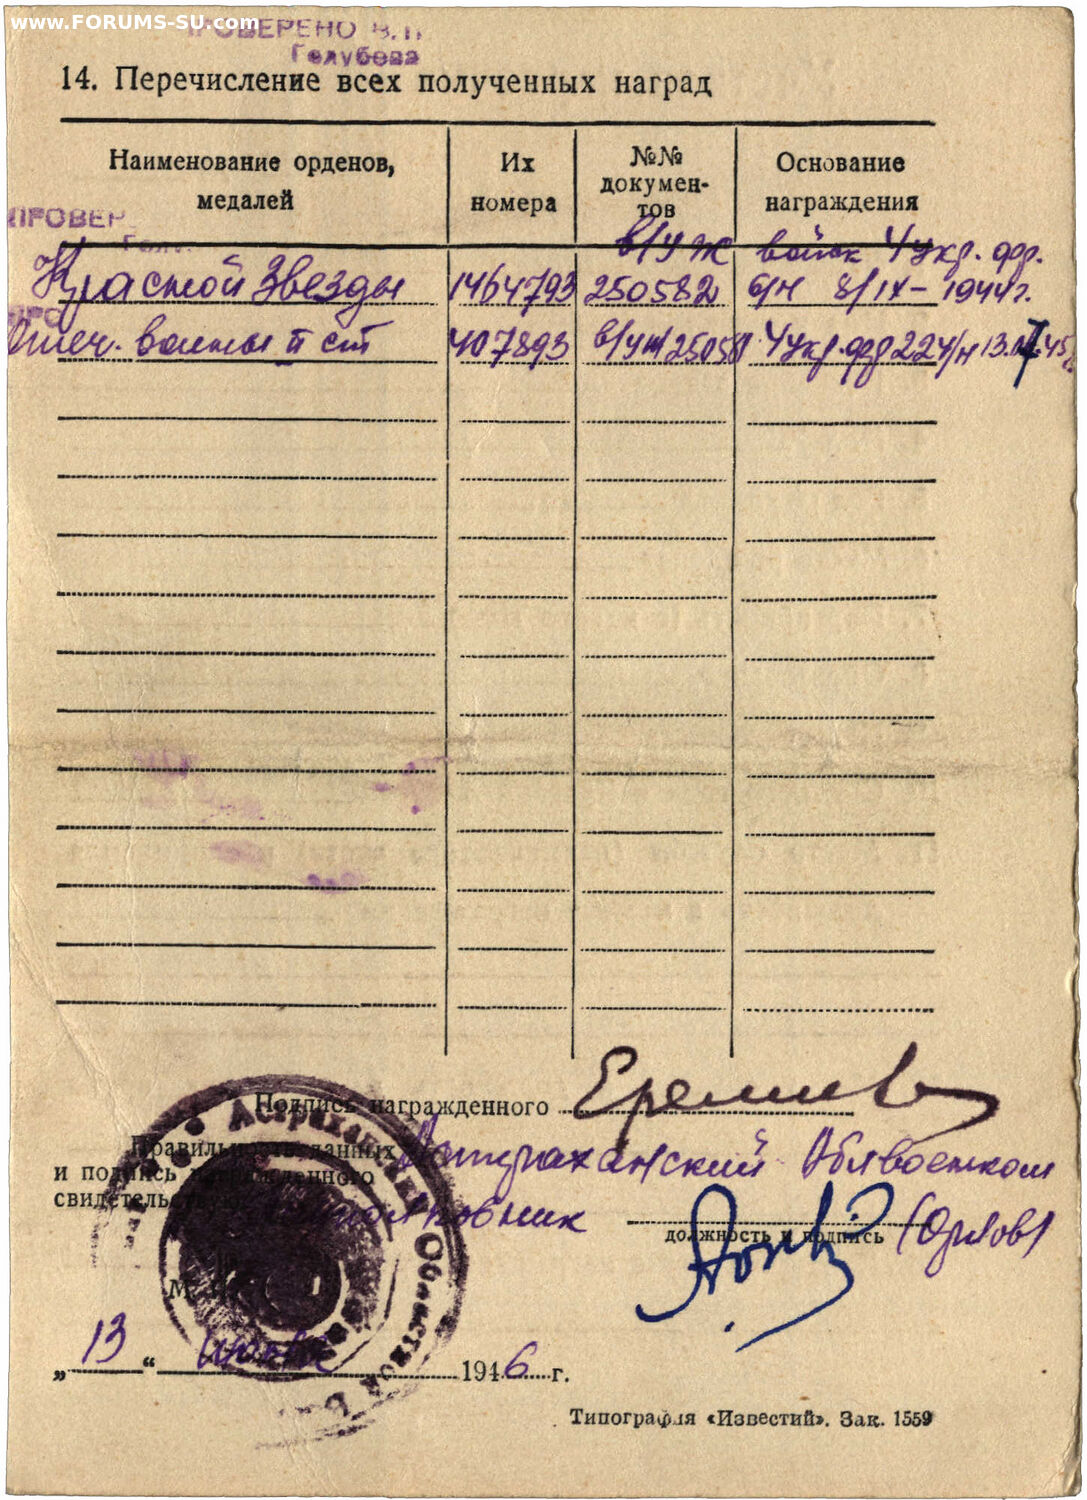 www.FORUMS-SU.com
ПРОВЕРЕНО
Голубева
14. Перечисление всех полученных наград
Наименование орденов, медалей
Их номера
№№ докумен-тов
Основание награждения
ПРОВЕР
в/уж войск 4 укр. фр.
Красной Звезды 1464793 250582 6/н 8/IX – 1944 г.
Отеч. войны II ст 407893 в/уж 4 укр. фр 224/н 45
Подпись награжденного Еремеев
Правильность данных Астраханский Облвоенком
и подпись награжденного
свидетельствую полковник
должность и подпись (Орлов)
Астрахан Областной
М. П.
„ 13 “ 1946 г.
Типография «Известий». Зак. 1559